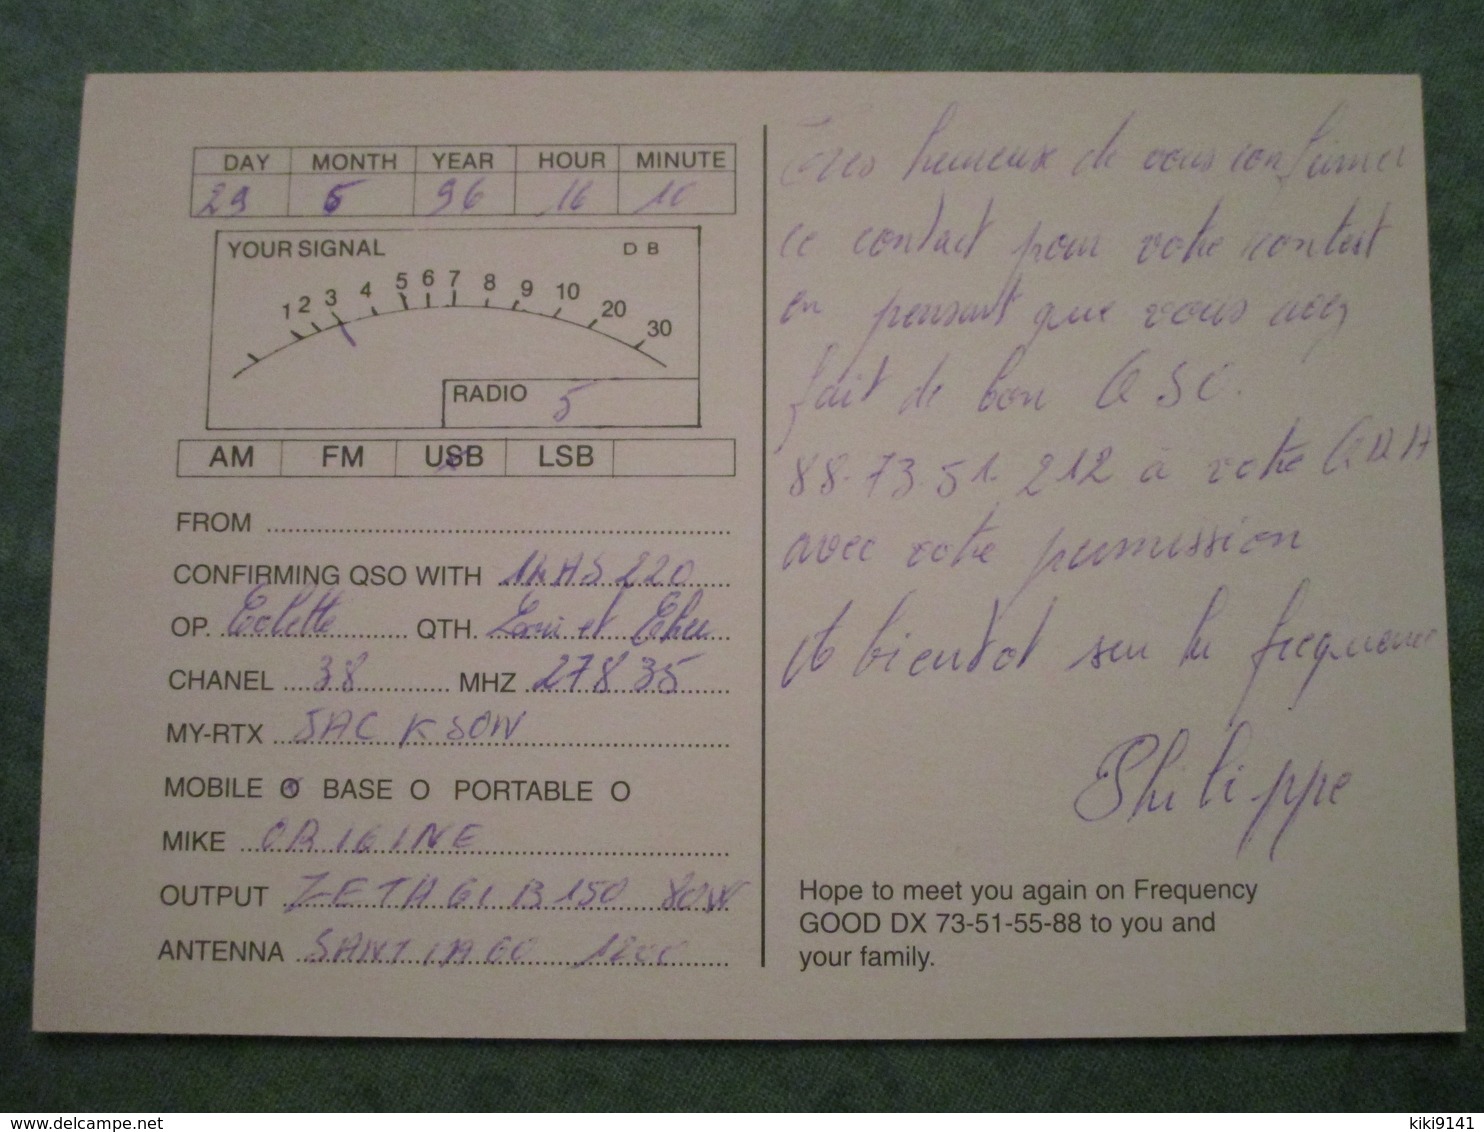 DAY MONTH YEAR HOUR MINUTE
29 5 96 16 10
YOUR SIGNAL D B
1 2 3 4 5 6 7 8 9 10 20 30
RADIO 5
AM FM USB LSB
FROM
CONFIRMING QSO WITH 14 AS 220
OP. Colette QTH. Loir et Cher
CHANEL 38 MHZ 27835
MY-RTX JACKSON
MOBILE O BASE O PORTABLE O
MIKE ORIGINE
OUTPUT ZETAGI B150 80W
ANTENNA SANTIAGO 1200
Très heureux de vous confirmer
ce contact pour votre contest
en pensant que vous avez
fait de bon QSO.
88.73.51.212 à votre QRA
avec votre permission
A bientot sur la frequence
Philippe
Hope to meet you again on Frequency
GOOD DX 73-51-55-88 to you and
your family.
delcampe.net
kiki9141